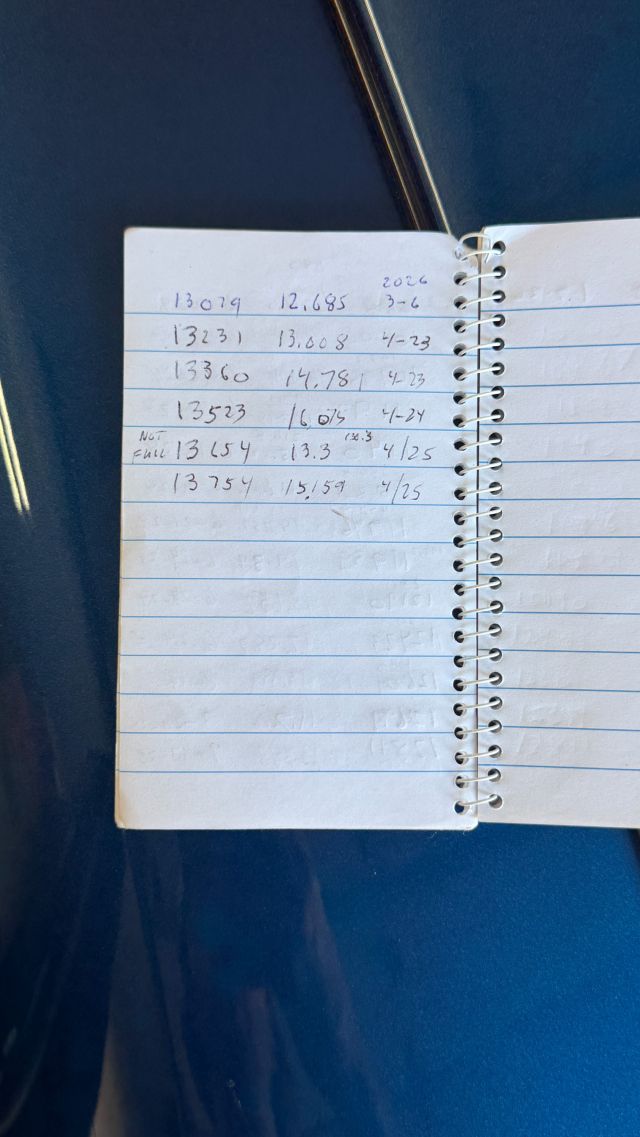 2026
13079 12.685 3-6
13231 13.008 4-23
13360 14.781 4-23
13523 16.075 4-24
NOT FULL 13654 13.3 4/25
13754 15.159 4/25